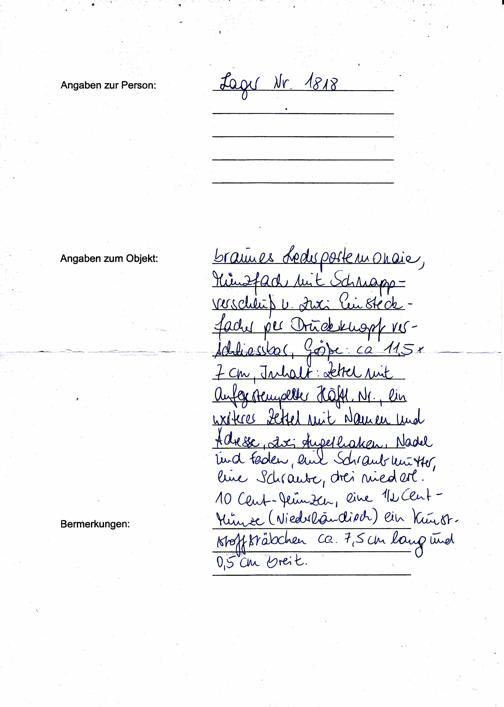 Angaben zur Person: Lager Nr. 1818
Angaben zum Objekt: braunes Lederportemonaie,
Münzfach mit Schnapp-
verschluß u. zwei Einsteck-
fächer per Druckknopf ver-
schliessbar, Größe: ca 11,5 x
7 cm, Inhalt: Zettel mit
aufgestempelter Häftl. Nr., ein
weiteres Zettel mit Namen und
Adresse, zwei Angelhaken, Nadel
und Faden, eine Schraubmutter,
eine Schraube, drei niederl.
10 Cent-Münzen, eine 1/2 Cent-
Bermerkungen: Münze (Niederländisch) ein Kunst-
stoffstäbchen ca. 7,5 cm lang und
0,5 cm breit.